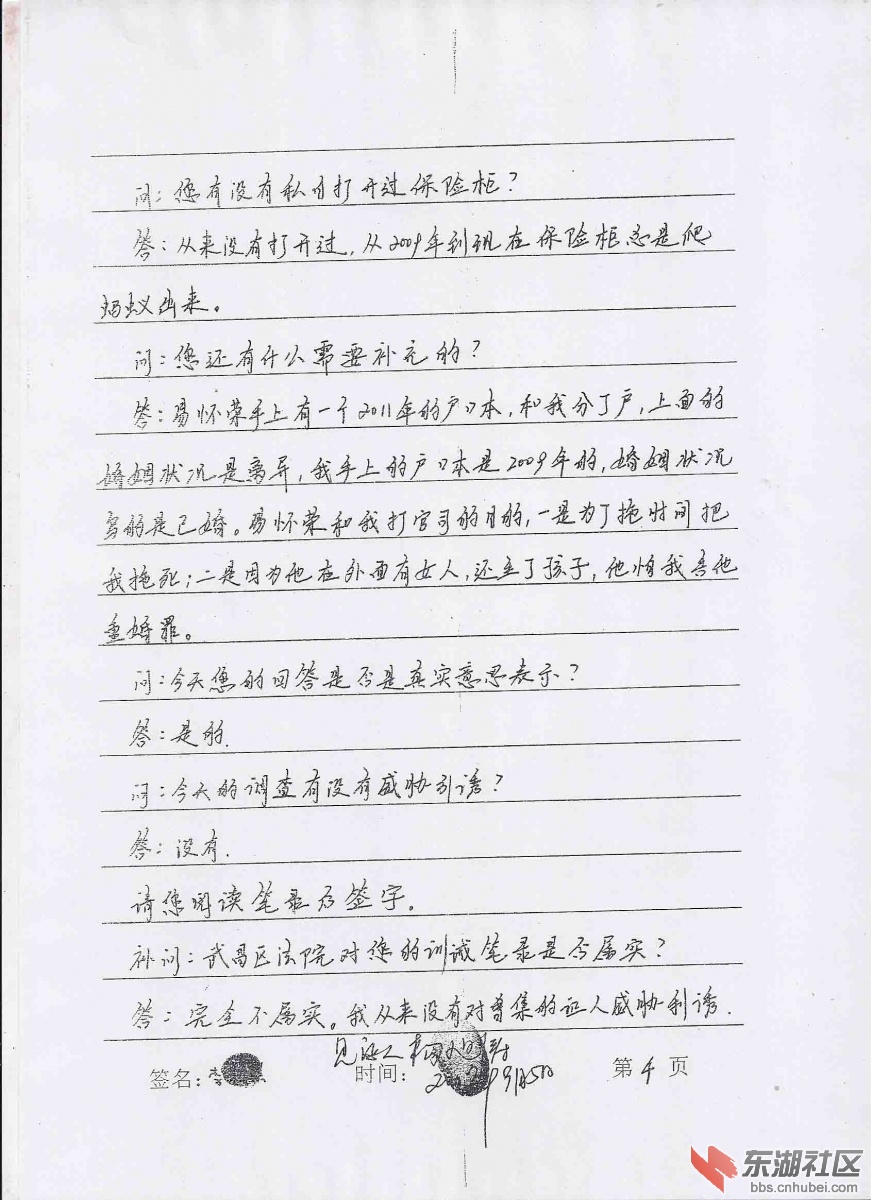 问：您有没有私自打开过保险柜？
答：从来没有打开过，从2009年到现在保险柜总是爬
蚂蚁出来。
问：您还有什么需要补充的？
答：易怀荣手上有一个2011年的户口本，和我分了户，上面的
婚姻状况是离异，我手上的户口本是2009年的，婚姻状况
写的是已婚。易怀荣和我打官司的目的，一是为了拖时间把
我拖死；二是因为他在外面有女人，还生了孩子，他怕我告他
重婚罪。
问：今天您的回答是否是真实意思表示？
答：是的.
问：今天的调查有没有威胁引诱？
答：没有.
请您阅读笔录后签字。
补问：武昌区法院对您的训诫笔录是否属实？
答：完全不属实。我从来没有对曾集的证人威胁利诱.
见证人
签名：李
时间：
第4页
东湖社区
bbs.cnhubei.com